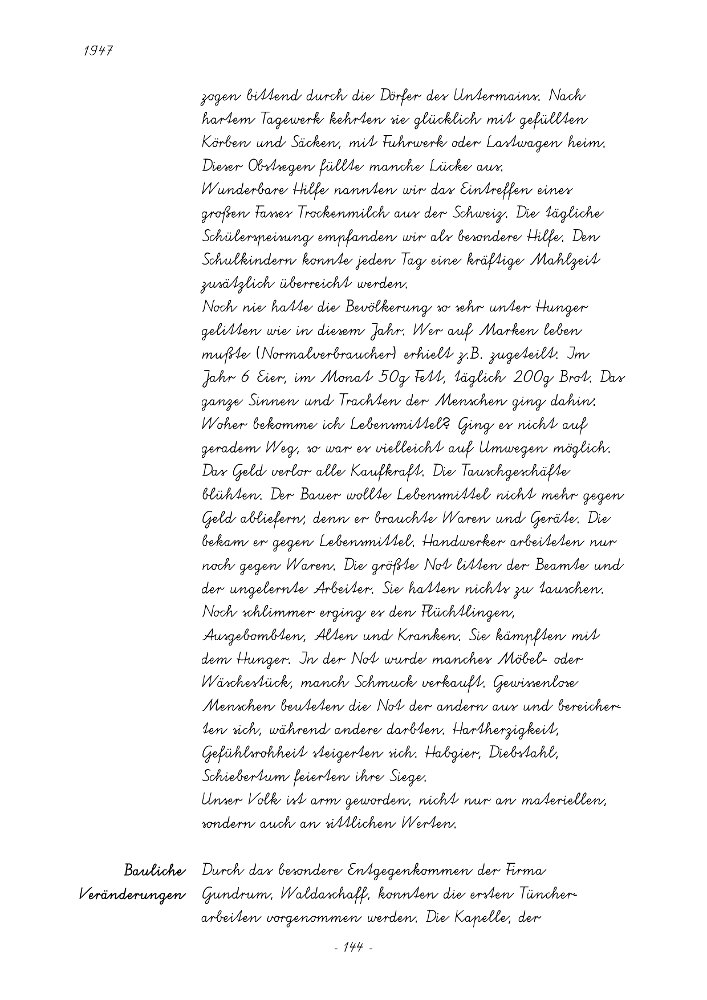 1947
zogen bittend durch die Dörfer des Untermains. Nach
hartem Tagewerk kehrten sie glücklich mit gefüllten
Körben und Säcken, mit Fuhrwerk oder Lastwagen heim.
Dieser Obstsegen füllte manche Lücke aus.
Wunderbare Hilfe nannten wir das Eintreffen eines
großen Fasses Trockenmilch aus der Schweiz. Die tägliche
Schülerspeisung empfanden wir als besondere Hilfe. Den
Schulkindern konnte jeden Tag eine kräftige Mahlzeit
zusätzlich überreicht werden.
Noch nie hatte die Bevölkerung so sehr unter Hunger
gelitten wie in diesem Jahr. Wer auf Marken leben
mußte (Normalverbraucher) erhielt z.B. zugeteilt: Im
Jahr 6 Eier, im Monat 50g Fett, täglich 200g Brot. Das
ganze Sinnen und Trachten der Menschen ging dahin:
Woher bekomme ich Lebensmittel? Ging es nicht auf
geradem Weg, so war es vielleicht auf Umwegen möglich.
Das Geld verlor alle Kaufkraft. Die Tauschgeschäfte
blühten. Der Bauer wollte Lebensmittel nicht mehr gegen
Geld abliefern; denn er brauchte Waren und Geräte. Die
bekam er gegen Lebensmittel. Handwerker arbeiteten nur
noch gegen Waren. Die größte Not litten der Beamte und
der ungelernte Arbeiter. Sie hatten nichts zu tauschen.
Noch schlimmer erging es den Flüchtlingen,
Ausgebombten, Alten und Kranken. Sie kämpften mit
dem Hunger. In der Not wurde manches Möbel- oder
Wäschestück, manch Schmuck verkauft. Gewissenlose
Menschen beuteten die Not der andern aus und bereicher-
ten sich, während andere darbten. Hartherzigkeit,
Gefühlsrohheit steigerten sich. Habgier, Diebstahl,
Schiebertum feierten ihre Siege.
Unser Volk ist arm geworden, nicht nur an materiellen,
sondern auch an sittlichen Werten.
Bauliche Durch das besondere Entgegenkommen der Firma
Veränderungen Gundrum, Waldaschaff, konnten die ersten Tüncher-
arbeiten vorgenommen werden. Die Kapelle, der
- 144 -